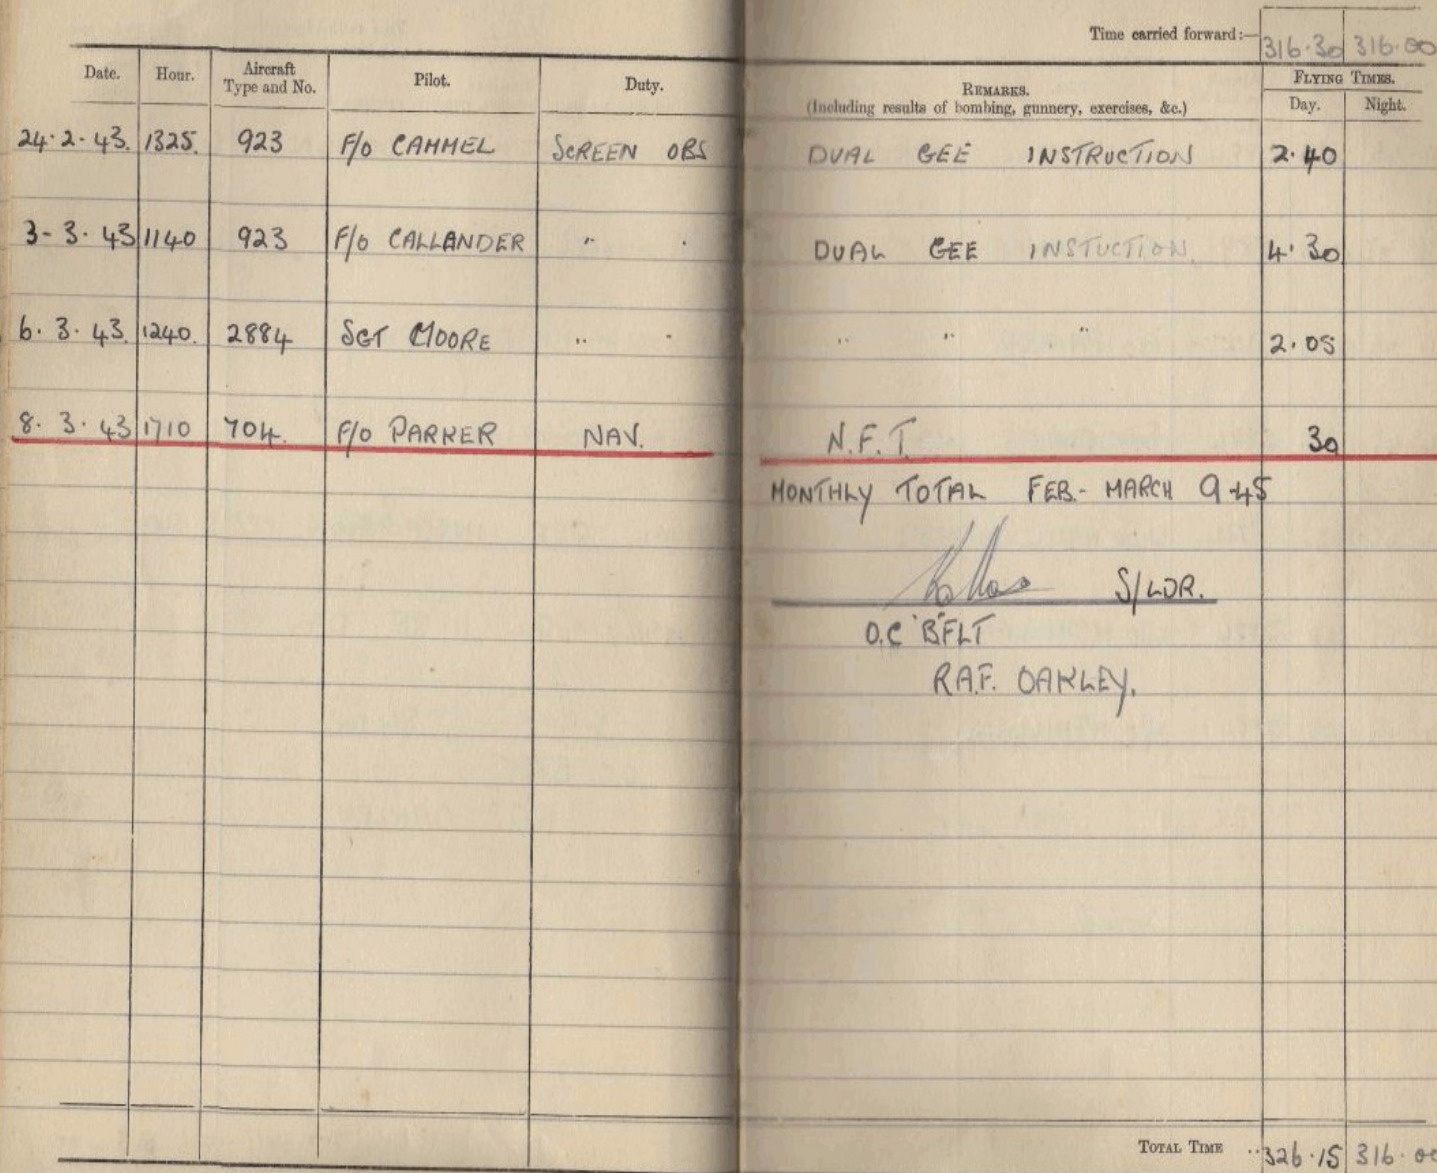 Time carried forward:— 316·30 316·00
Date. Hour. Aircraft Type and No. Pilot. Duty. REMARKS. (Including results of bombing, gunnery, exercises, &c.) FLYING TIMES. Day. Night.
24·2·43. 1325. 923 F/O CAMMEL SCREEN OBS DUAL GEE INSTRUCTION 2·40
3-3·43 1140 923 F/O CALLANDER " · DUAL GEE INSTUCTION. 4·30
6·3·43. 1240. 2884 SGT MOORE " · " " " 2·05
8·3·43 1710 704. F/O PARKER NAV. N.F.T. 30
MONTHLY TOTAL FEB.- MARCH 9·45
S/LDR.
O.C 'B' FLT
R.A.F. OAKLEY.
TOTAL TIME ·· 326·15 316·00